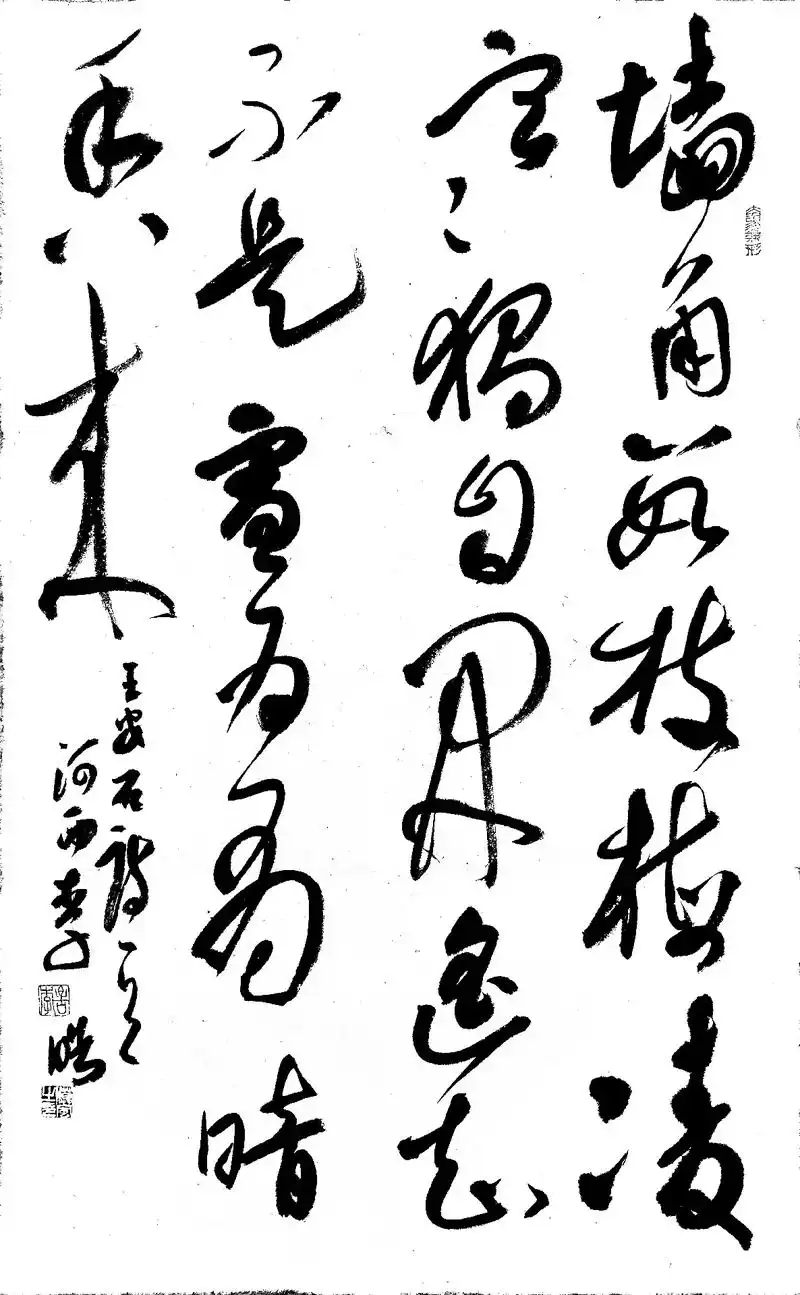 墙角数枝梅凌
寒独自開遙知
不是雪为有暗
香来
王安石詩一首
河西李